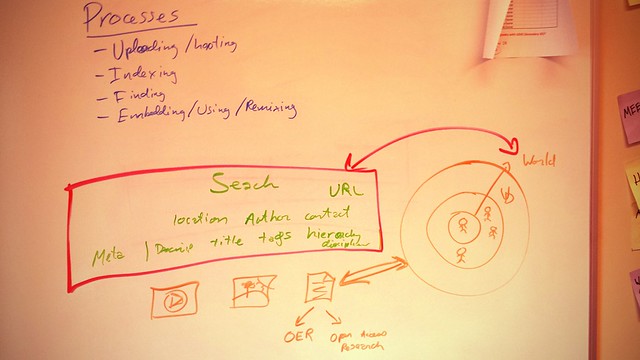 Processes
- Uploading/hosting
- Indexing
- Finding
- Embedding/Using/Remixing
World
Search
URL
location Author contact
Meta title tags hierarchy
discipline
OER
Open Access
Research
MEE